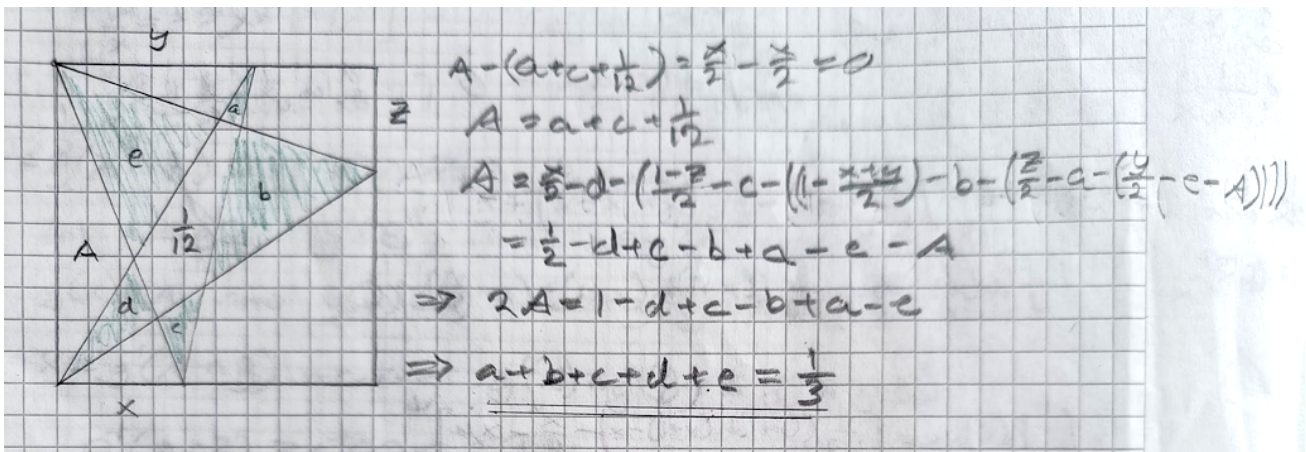 y
a
z
e
b
1/12
A
d
c
x
A - (a+c+1/12) = x/2 - x/2 = 0
A = a+c+1/12
A = x/2 - d - (1-z/2 - c - ((1 - x+y/2) - b - (z/2 - a - (y/2 - e - A))))
= 1/2 - d+c - b+a - e - A
⇒ 2A = 1 - d+c - b+a - e
⇒ a+b+c+d+e = 1/3